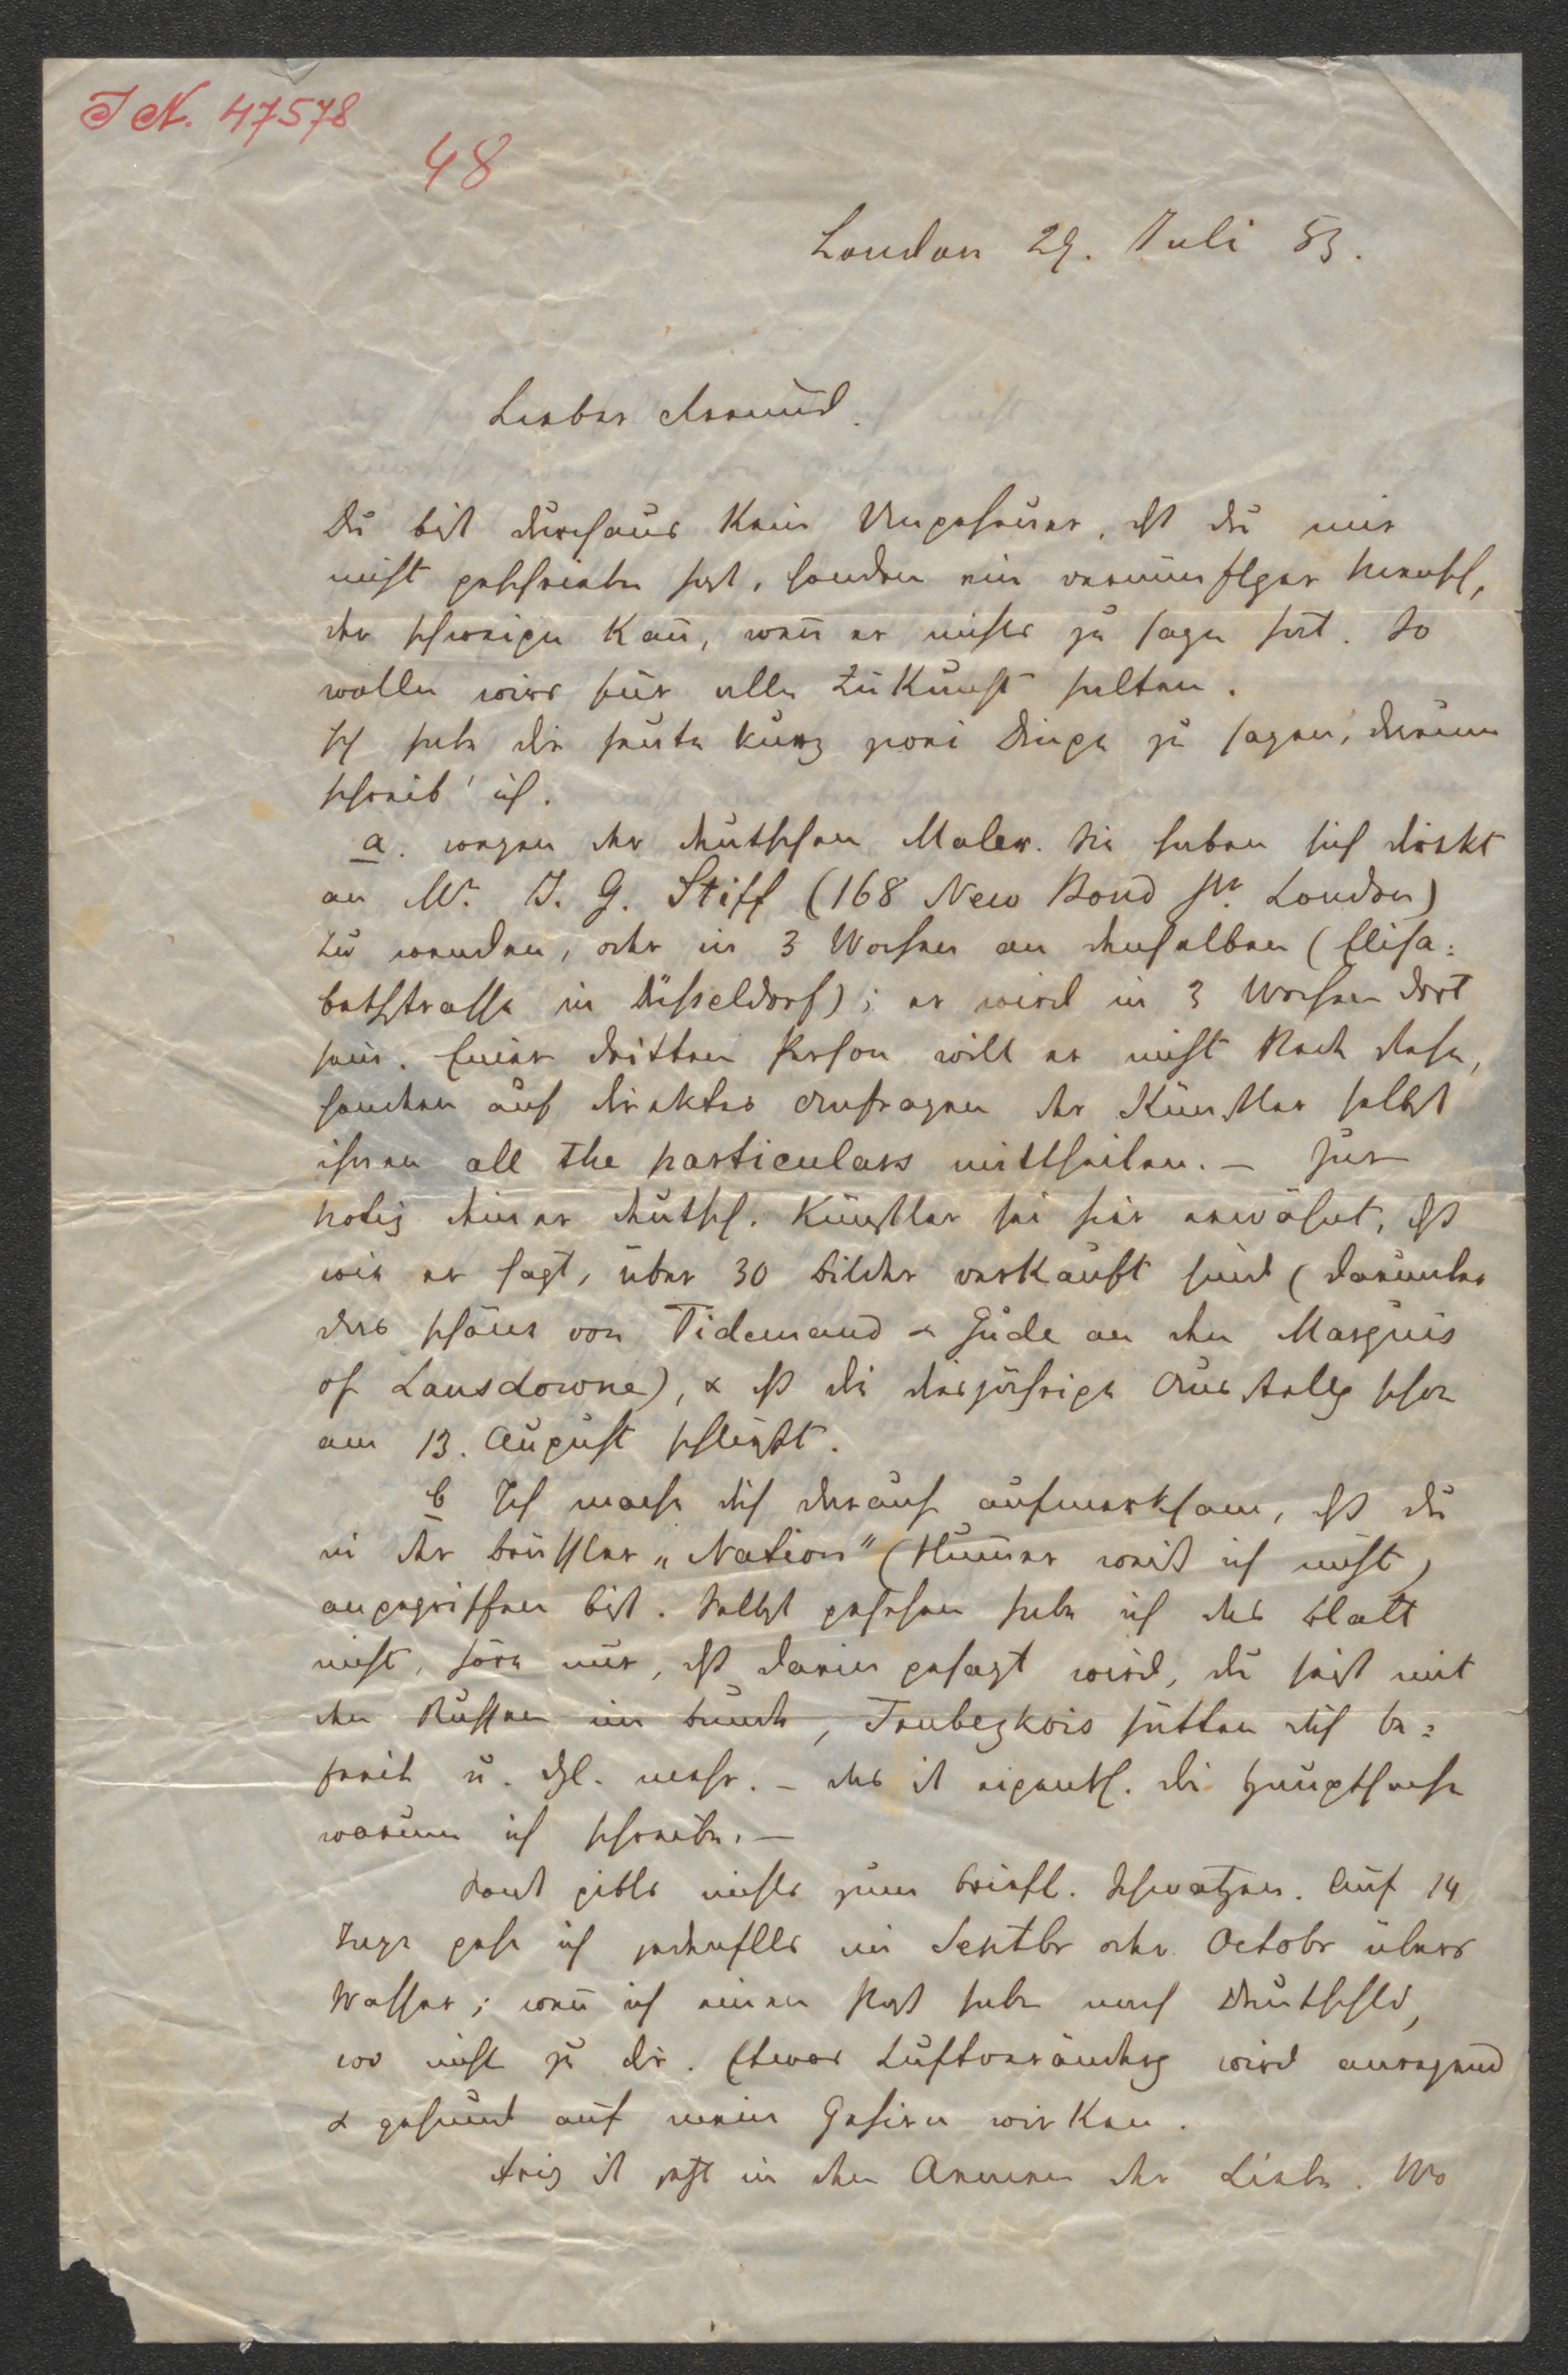 J N. 47578
48
London 29. Juli 53.
Lieber Freund.
Du bist durchaus kein Ungeheuer, dß du mir
nicht geschrieben hast, sondern ein vernünftger Mensch,
der schweigen kañ, weñ er nichts zu sagen hat. So
wollen wirs für alle Zukunft halten.
Ich habe dir heute kurz zwei Dinge zu sagen, darum
schreib' ich.
a. wegen der deutschen Maler. Sie haben sich direkt
an Mr. J. G. Stiff (168 New Bond Str. London)
zu wenden, oder in 3 Wochen an denselben (Elisa=
bethstrasse in Düsseldorf); er wird in 3 Wochen dort
sein. Einer dritten Person will er nicht Rede stehn,
sondern auf direktes Anfragen der Künstler selbst
ihnen all the particulars mittheilen. – Zur
Notiz deiner deutsch. Künstler sei hier erwähnt, dß
wie er sagt, über 30 Bilder verkauft sind (darunter
das schöne von Tidemand & Gude an den Marquis
of Lansdowne), & dß die diesjährige Ausstellg schon
am 13. August schließt.
b Ich mache dich darauf aufmerksam, dß du
in der brüssler „Nation" (Num̄er weiß ich nicht)
angegriffen bist. Selbst gesehen habe ich das Blatt
nicht, höre nur, dß darin gesagt wird, du seist mit
den Russen im Bunde, Trubezkois hätten dich be=
freit u. dgl. mehr. – das ist eigentl. die Hauptsache
warum ich schreibe. –
Sonst gibts nichts zum briefl. Schwatzen. Auf 14
Tage gehe ich jedenflls im Septbr oder Octobr übers
Wasser; weñ ich einen Paß habe nach Deutschld,
wo nicht zu dir. Etwas Luftverändrg wird anregend
& gesund auf mein Gehirn wirken.
ist jetzt in den Armen der Liebe. Wo